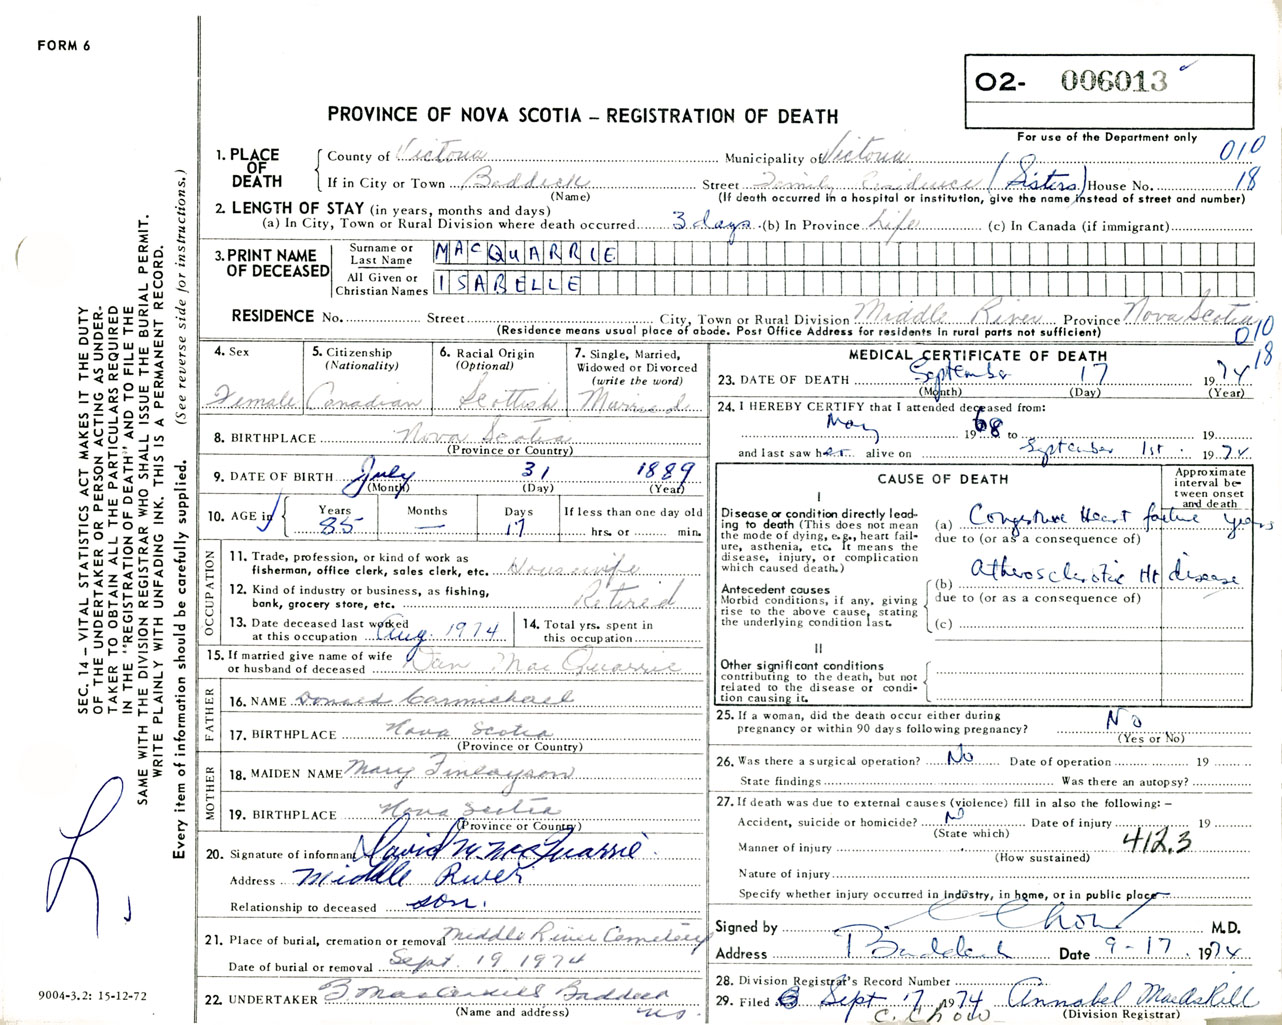 FORM 6
O2- 006013
PROVINCE OF NOVA SCOTIA – REGISTRATION OF DEATH
For use of the Department only
010
18
1. PLACE OF DEATH
County of Victoria Municipality of Victoria
If in City or Town Baddeck Street Family Residence (Sisters) House No.
(Name) (If death occurred in a hospital or institution, give the name instead of street and number)
2. LENGTH OF STAY (in years, months and days)
(a) In City, Town or Rural Division where death occurred 3 days (b) In Province Life (c) In Canada (if immigrant)
3. PRINT NAME OF DECEASED
Surname or Last Name MACQUARRIE
All Given or Christian Names ISABELLE
RESIDENCE No. Street City, Town or Rural Division Middle River Province Nova Scotia
(Residence means usual place of abode. Post Office Address for residents in rural parts not sufficient)
010
18
4. Sex Female
5. Citizenship (Nationality) Canadian
6. Racial Origin (Optional) Scottish
7. Single, Married, Widowed or Divorced (write the word) Married
8. BIRTHPLACE Nova Scotia
(Province or Country)
9. DATE OF BIRTH July 31 1889
(Month) (Day) (Year)
10. AGE in Years Months Days If less than one day old
85 — 17 hrs. or min.
OCCUPATION
11. Trade, profession, or kind of work as fisherman, office clerk, sales clerk, etc. Housewife
12. Kind of industry or business, as fishing, bank, grocery store, etc. Retired
13. Date deceased last worked at this occupation Aug. 1974
14. Total yrs. spent in this occupation
15. If married give name of wife or husband of deceased Dan MacQuarrie
FATHER
16. NAME Donald Carmichael
17. BIRTHPLACE Nova Scotia
(Province or Country)
MOTHER
18. MAIDEN NAME Mary Finlayson
19. BIRTHPLACE Nova Scotia
(Province or Country)
20. Signature of informant David N. McQuarrie
Address Middle River
Relationship to deceased son.
21. Place of burial, cremation or removal Middle River Cemetery
Date of burial or removal Sept. 19 1974
22. UNDERTAKER Baddeck
(Name and address) NS.
MEDICAL CERTIFICATE OF DEATH
23. DATE OF DEATH September 17 1974
(Month) (Day) (Year)
24. I HEREBY CERTIFY that I attended deceased from:
May 1968 to 19
and last saw her alive on September 1st. 1974
CAUSE OF DEATH
Approximate interval between onset and death
I
Disease or condition directly leading to death (This does not mean the mode of dying, e.g., heart failure, asthenia, etc. It means the disease, injury, or complication which caused death.)
(a) Congestive Heart failure years
due to (or as a consequence of)
Antecedent causes
Morbid conditions, if any, giving rise to the above cause, stating the underlying condition last.
(b) Atherosclerotic Ht disease
due to (or as a consequence of)
(c)
II
Other significant conditions contributing to the death, but not related to the disease or condition causing it.
25. If a woman, did the death occur either during pregnancy or within 90 days following pregnancy? No
(Yes or No)
26. Was there a surgical operation? No Date of operation 19
State findings Was there an autopsy?
27. If death was due to external causes (violence) fill in also the following: –
Accident, suicide or homicide? No Date of injury 19
(State which)
Manner of injury 412.3
(How sustained)
Nature of injury
Specify whether injury occurred in industry, in home, or in public place
Signed by C Chow M.D.
Address Baddeck Date 9-17 1974
28. Division Registrar's Record Number
29. Filed Sept 17 1974 Annabel MacAskill
C. Chow (Division Registrar)
SEC. 14 – VITAL STATISTICS ACT MAKES IT THE DUTY
OF THE UNDERTAKER OR PERSON ACTING AS UNDER-
TAKER TO OBTAIN ALL THE PARTICULARS REQUIRED
IN THE "REGISTRATION OF DEATH" AND TO FILE THE
SAME WITH THE DIVISION REGISTRAR WHO SHALL ISSUE THE BURIAL PERMIT.
WRITE PLAINLY WITH UNFADING INK. THIS IS A PERMANENT RECORD.
Every item of information should be carefully supplied. (See reverse side for instructions.)
9004-3.2: 15-12-72